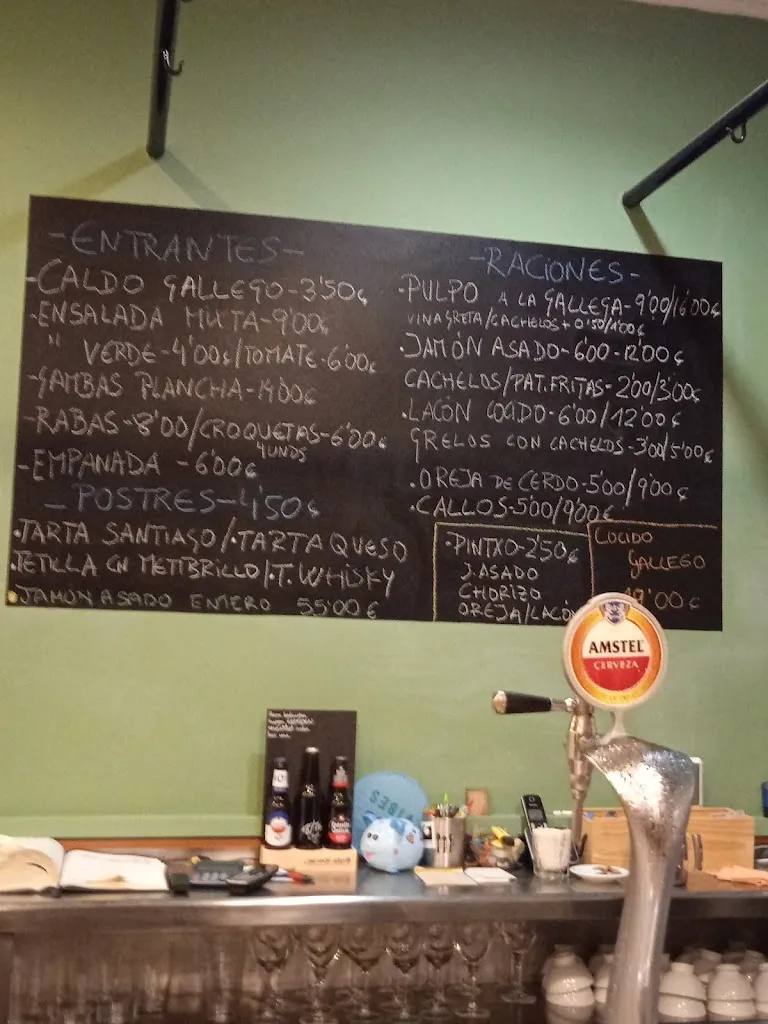 -ENTRANTES-
-CALDO GALLEGO-3'50€
-ENSALADA MIXTA-9'00€
" VERDE-4'00€/TOMATE-6'00€
-GAMBAS PLANCHA-14'00€
-RABAS-8'00/CROQUETAS-6'00€
4UNDS
-EMPANADA -6'00€
-POSTRES-4'50€
·TARTA SANTIAGO/·TARTA QUESO
·TETILLA CN METIBRILLO/·T.WHISKY
·JAMON ASADO ENTERO 55'00€
-RACIONES-
·PULPO A LA GALLEGA-9'00/16'00€
VINAGRETA/CACHELOS+0'50/1'00€
·JAMÓN ASADO-6'00-12'00€
CACHELOS/PAT.FRITAS-2'00/3'00€
·LACÓN COCIDO-6'00/12'00€
GRELOS CON CACHELOS-3'00/5'00€
·OREJA DE CERDO-5'00/9'00€
·CALLOS-5'00/9'00€
·PINTXO-2'50€
J.ASADO
CHORIZO
OREJA/LACÓN
COCIDO
GALLEGO
19'00€
AMSTEL
CERVEZA
VIBES